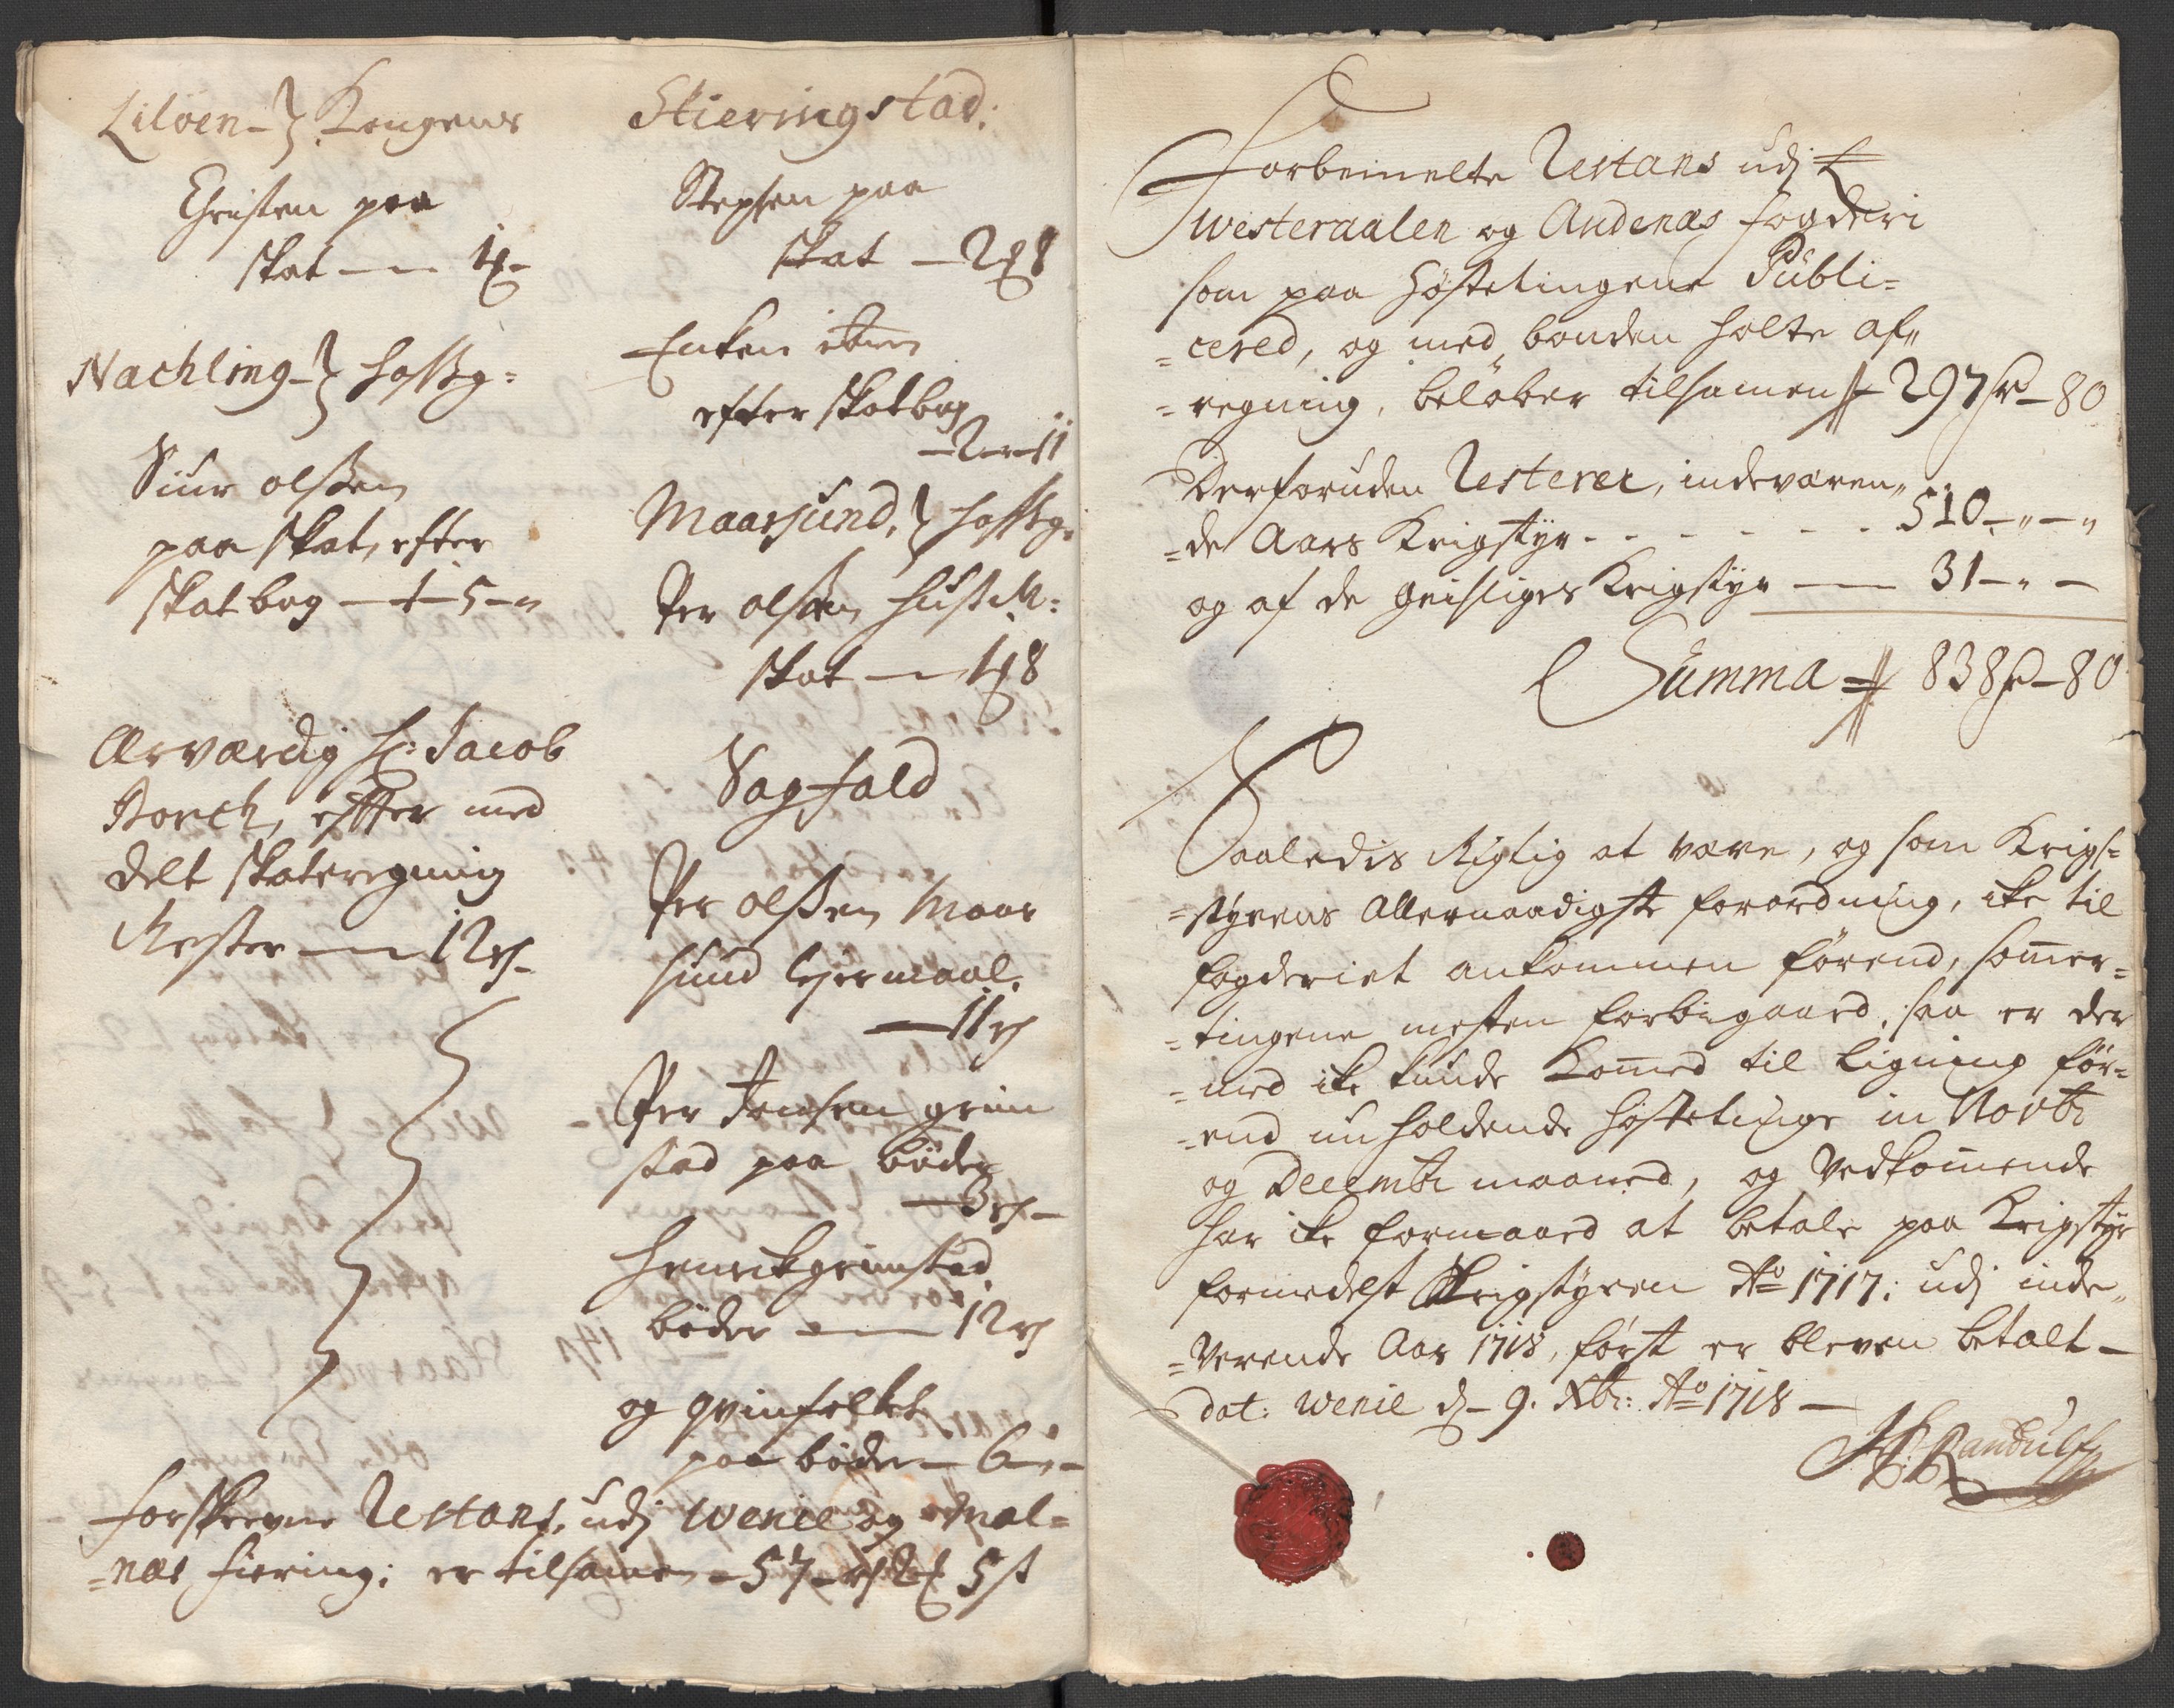 Liloen - Kongens
Christen paa
skat — 1
Nachling - hoffg:
Siur olssen
paa skat, efter
skatbog — 1 - 5 - "
Ærværdig Hr: Jacob
Borch, efter med
delt skateregning
Rester — 12
Skieringstad:
Stephen paa
skat — 2 8
Enken
efter skatbog
— 2 — 11
Maarsund, hoffg:
Per olssen hussM:
skat — 1 8
Sagfald
Per olssen Maar
sund lejermaal.
— 11
Per Jensen grim
stad paa bøder
— 3 —
Henrik grimstad
bøder — 12
og qvinfolket
paa bøder — 6 —
forskrevne Restans, udj Wenie og Mal=
=nes fiering: er tilsamen - 57 - 2 5 s
Forbemelte Restans udj
Westeraalen og Andenæs fogderi
som paa Høstetingene Publi=
=cered, og med bonden holte af„
=regning, beløber tilsamen 297 - 80
Derforuden Resterer, indeværen„
=de Aars Krigstyr - - - - - - 510 - " - "
og af de geistliges Krigstyr — 31 - " -
Summa 838 - 80
Saaledis Rigtig at være, og som Krigs=
=styrens Allernaadigste forordning, ike til
fogderiet ankommen førend, somer=
=tingene mesten forbigaard, saa er der
=med ike kunde komed til ligning før=
=end nu holdende høstetinge in Novbr
og Decembr maaned, og Vedkomende
har ike formaaed at betale paa Krigstyr
formedelst Krigstyren Ao 1717: udj inde„
=Verende Aar 1718, først er bleven betalt —
dat: Wenie d - 9. Xbr: Ao 1718 —
Randulff